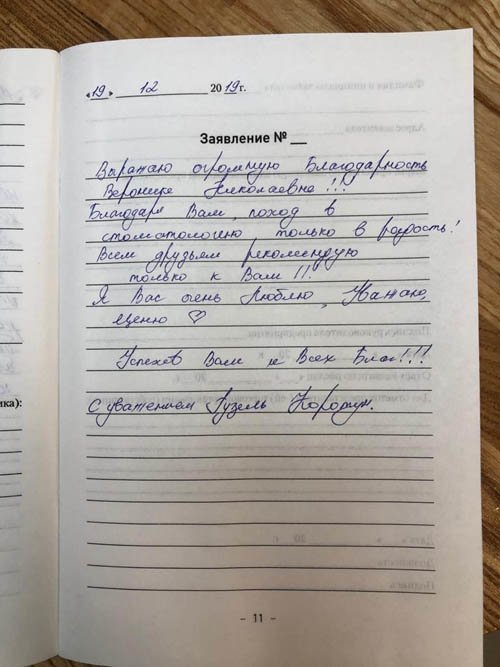 «19» 12 2019г.
Заявление № __
Выражаю огромную Благодарность
Веронике Николаевне!!!
Благодаря Вам, поход в
стоматологию только в радость!
Всем друзьям рекомендую
только к Вам!!
Я Вас очень Люблю, Уважаю,
ценю ♡
Успехов Вам и Всех Благ!!!!
С уважением Гузель
ика):
- 11 -